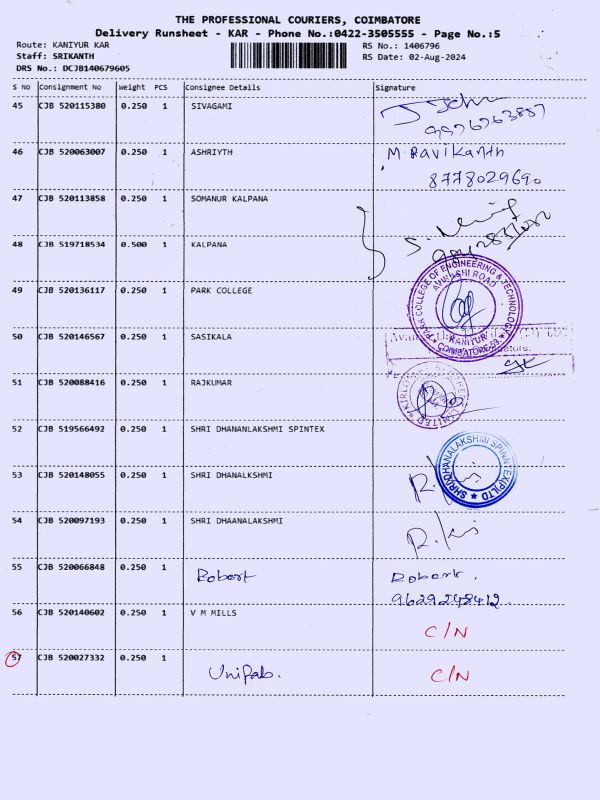 THE PROFESSIONAL COURIERS, COIMBATORE
Delivery Runsheet - KAR - Phone No.:0422-3505555 - Page No.:5
Route: KANIYUR KAR RS No.: 1406796
Staff: SRIKANTH RS Date: 02-Aug-2024
DRS No.: DCJB140679605
S No Consignment No Weight PCS Consignee Details Signature
45 CJB 520115380 0.250 1 SIVAGAMI
46 CJB 520063007 0.250 1 ASHRIYTH M. Ravikanth
8778029690
47 CJB 520113858 0.250 1 SOMANUR KALPANA
48 CJB 519718534 0.500 1 KALPANA
49 CJB 520136117 0.250 1 PARK COLLEGE
PARK COLLEGE OF ENGINEERING & TECHNOLOGY
AVINASHI ROAD
KANIYUR
COIMBATORE-59
50 CJB 520146567 0.250 1 SASIKALA
51 CJB 520088416 0.250 1 RAJKUMAR
52 CJB 519566492 0.250 1 SHRI DHANANLAKSHMI SPINTEX
SHRI DHANALAKSHMI SPINNTEX (P) LTD
53 CJB 520148055 0.250 1 SHRI DHANALKSHMI
54 CJB 520097193 0.250 1 SHRI DHAANALAKSHMI
55 CJB 520066848 0.250 1 Robert Robert.
9629248412
56 CJB 520140602 0.250 1 V M MILLS C/N
57 CJB 520027332 0.250 1 Unifab. C/N